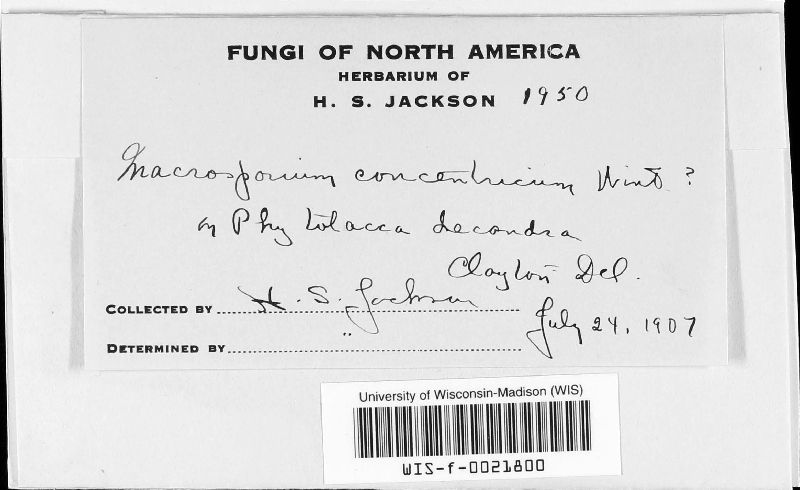 FUNGI OF NORTH AMERICA
HERBARIUM OF
H. S. JACKSON 1950
Macrosporium concentricum Wint ?
on Phytolacca decandra
Clayton Del.
COLLECTED BY H. S. Jackson July 24, 1907
DETERMINED BY "
University of Wisconsin-Madison (WIS)
WIS-f-0021800